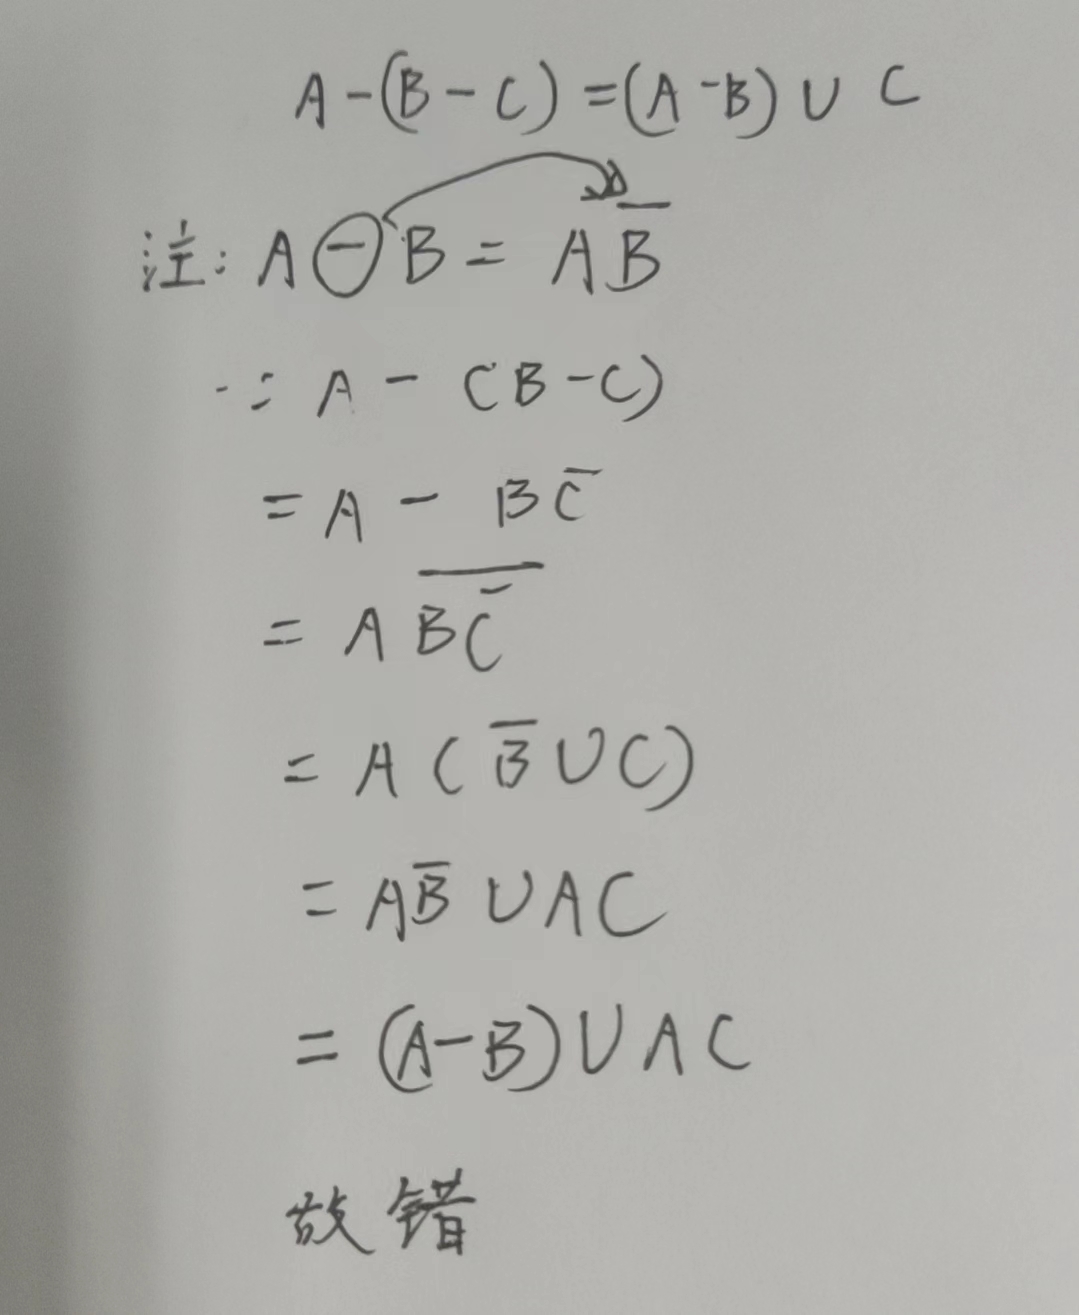 A-(B-C)=(A-B)∪C
注: A⊖B=AB̅
∵ A-(B-C)
=A-BC̅
=A\overline{BC̅}
=A(B̅∪C)
=AB̅∪AC
=(A-B)∪AC
故错